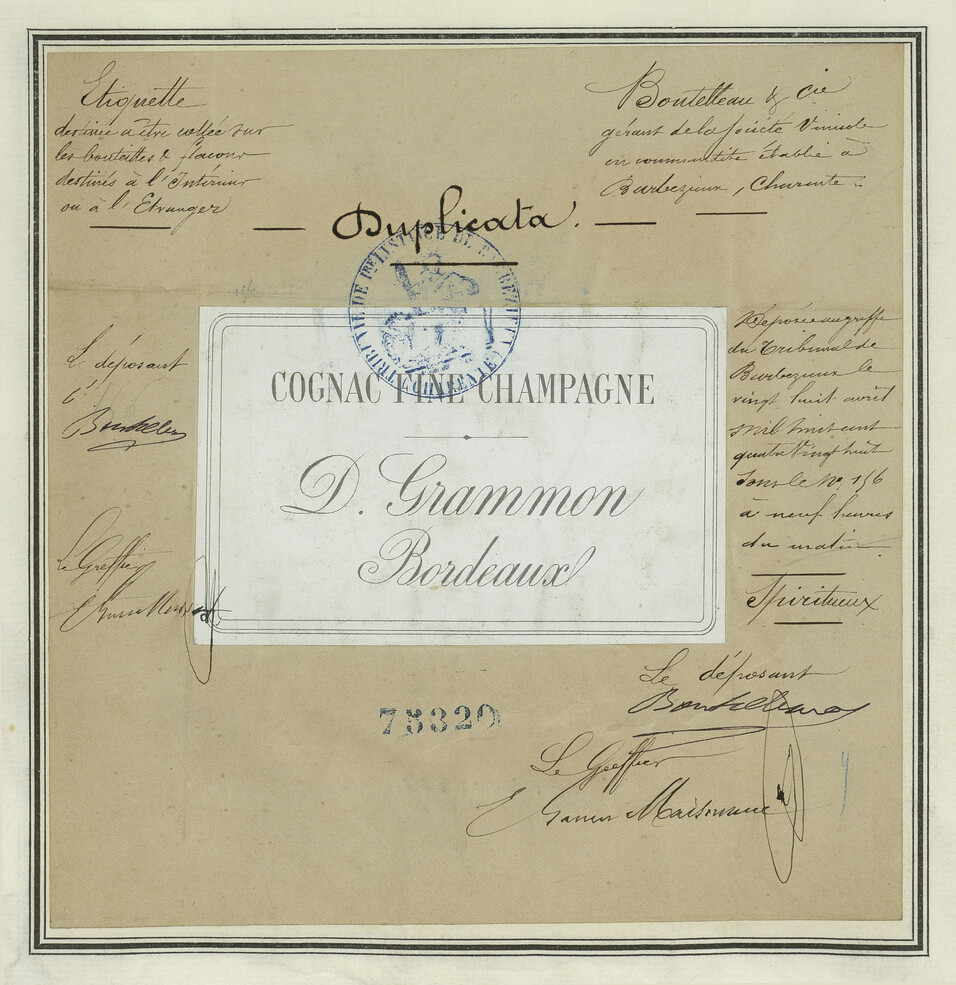 Etiquette
destinée à être collée sur
les bouteilles & flacons
destinés à l'Intérieur
ou à l'Etranger
Boutelleau & Cie
gérant de la Société Vinicole
en commandite établie à
Barbezieux, Charente
— Duplicata. —
TRIBUNAL DE 1RE INSTANCE DE BARBEZIEUX
156
COGNAC FINE CHAMPAGNE
D. Grammon
Bordeaux
Le déposant
Boutelleau
Le Greffier
Déposée au greffe
du Tribunal de
Barbezieux le
vingt huit avril
mil huit cent
quatre vingt huit
sous le No. 156
à neuf heures
du matin
Spiritueux
75320
Le déposant
Boutelleau
Le Greffier
Maisonneuve